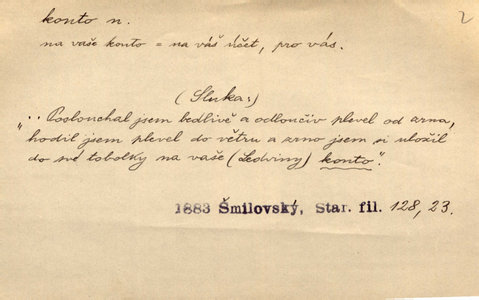 konto n. 2
na vaše konto = na váš účet, pro vás.
(Sluka:)
„.. Poslouchal jsem bedlivě a odloučiv plevel od zrna,
hodil jsem plevel do větru a zrno jsem si uložil
do své tobolky na vaše (Ledviny) konto“.
1883 Šmilovský, Star. fil. 128, 23.